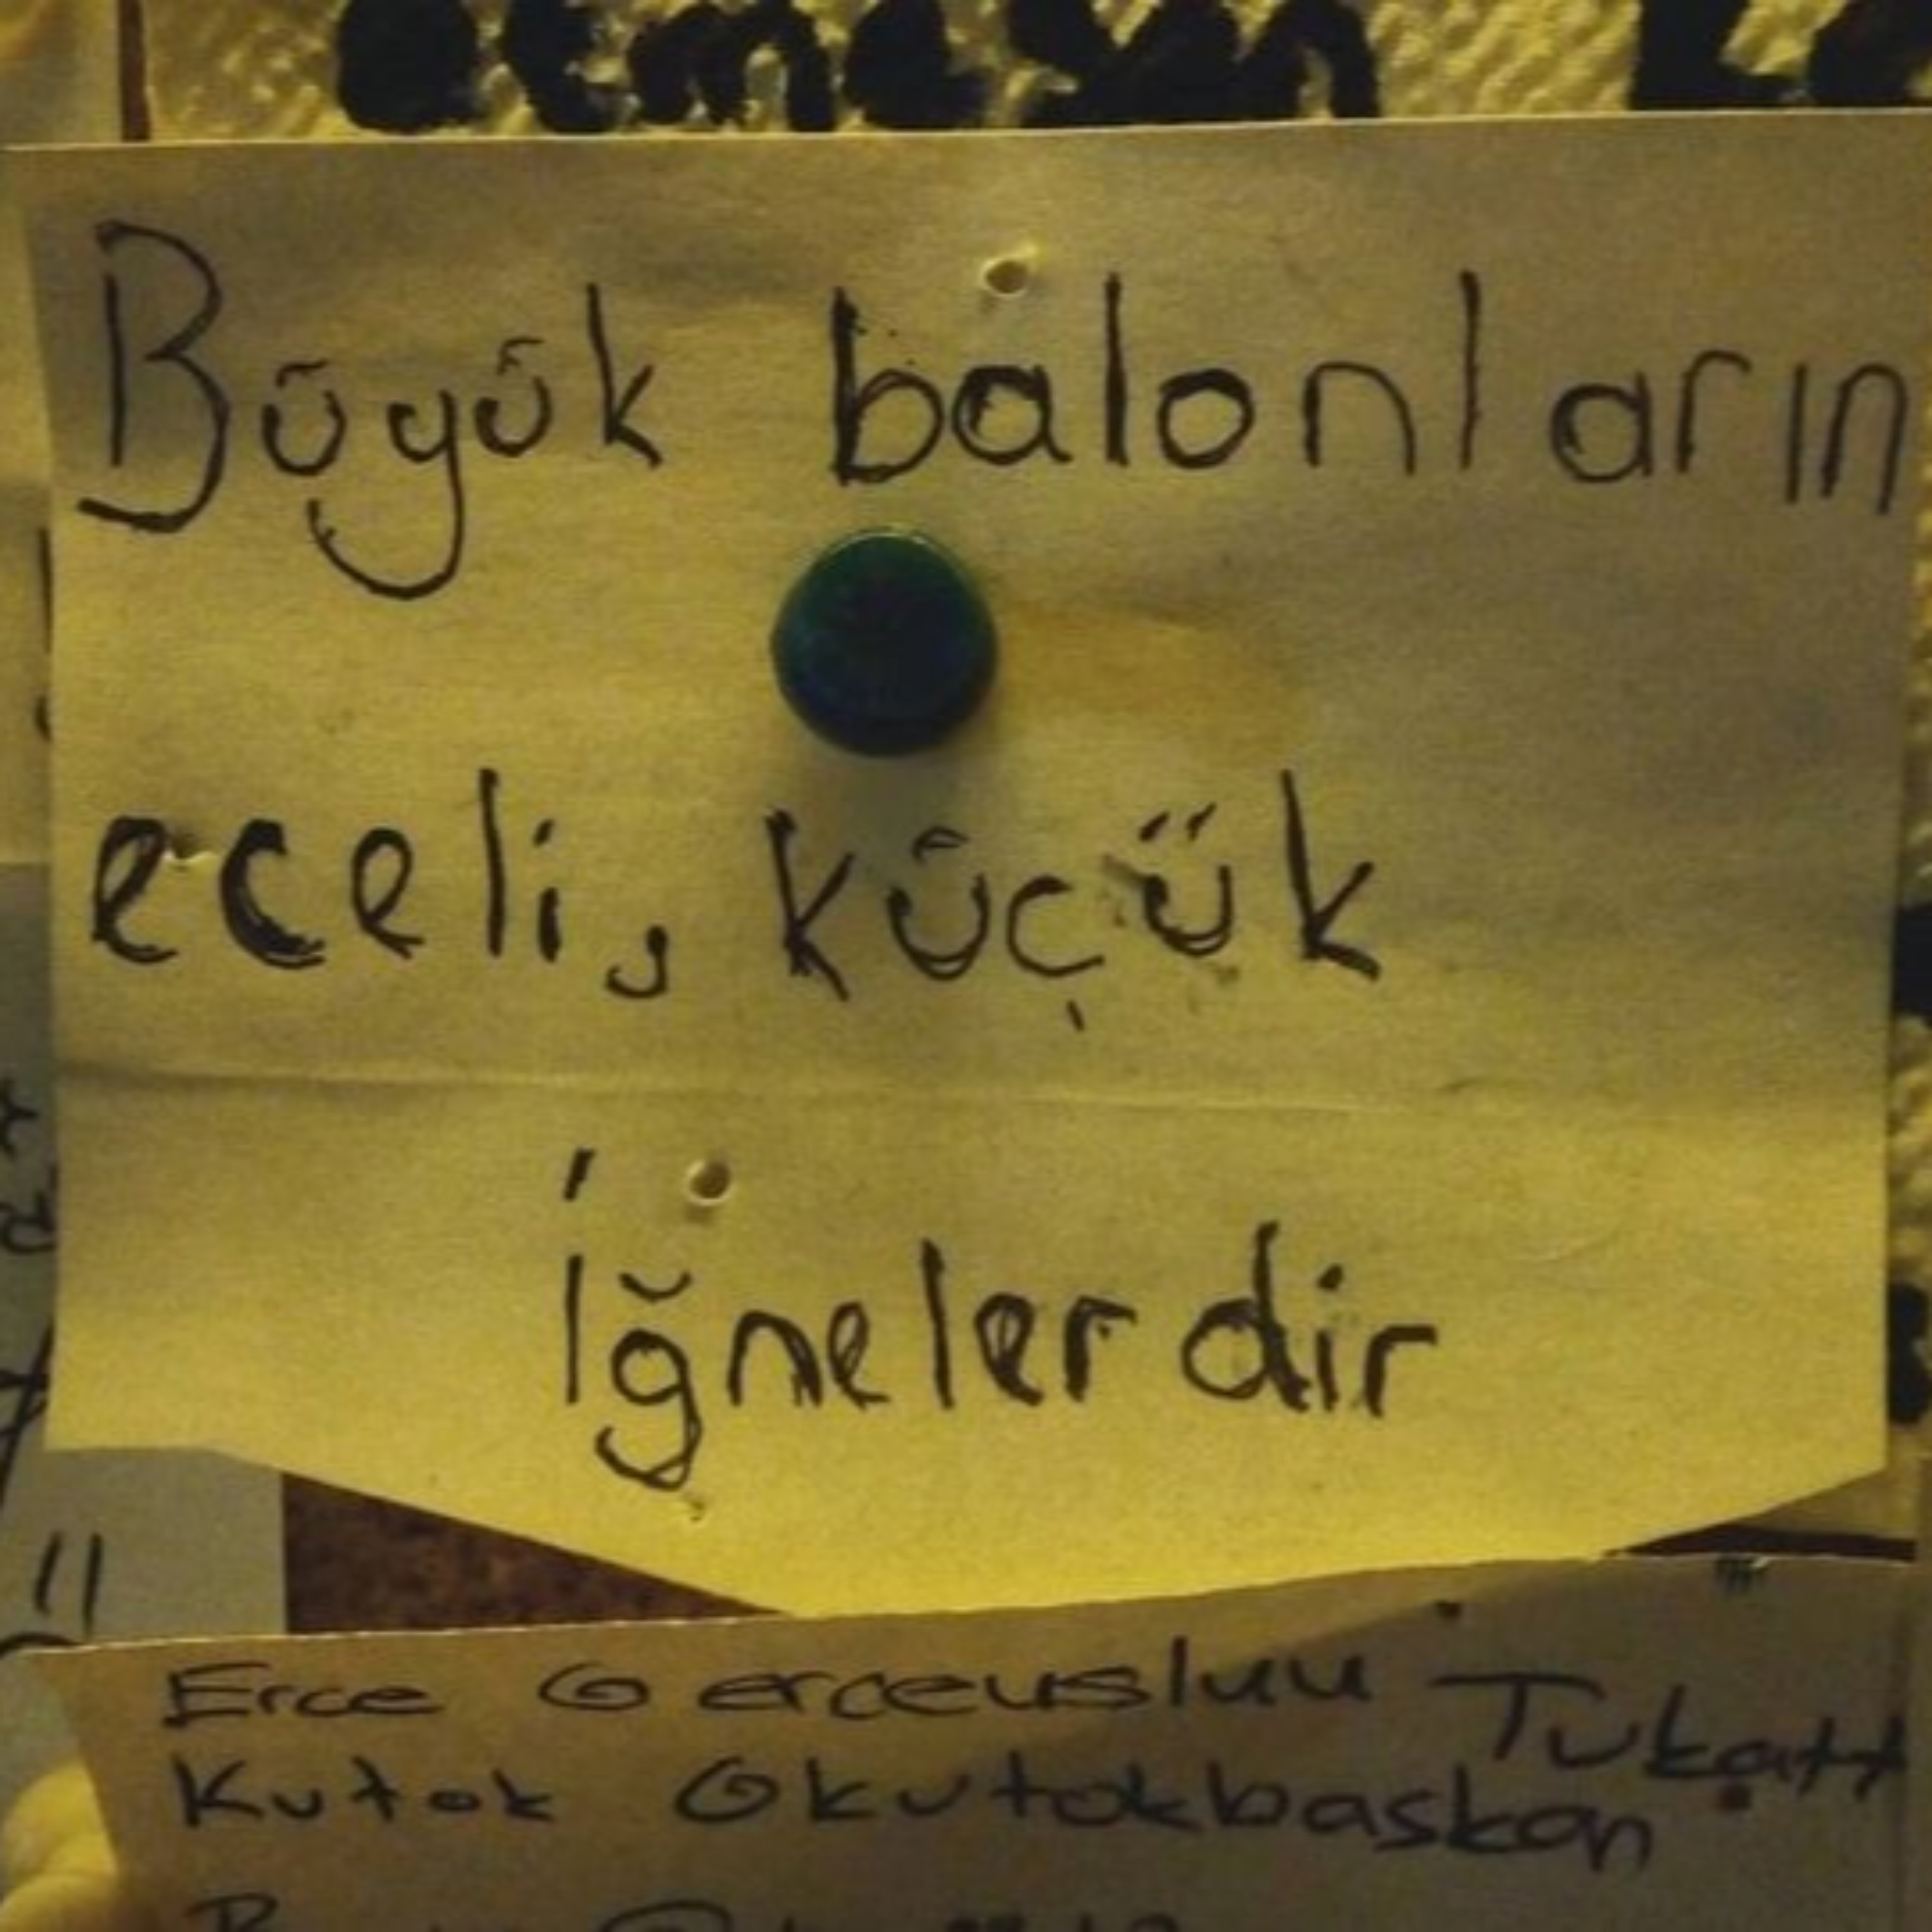 Büyük balonların
eceli, küçük
İğnelerdir
Erce @erceusluu
Kutok @kutokbaskan